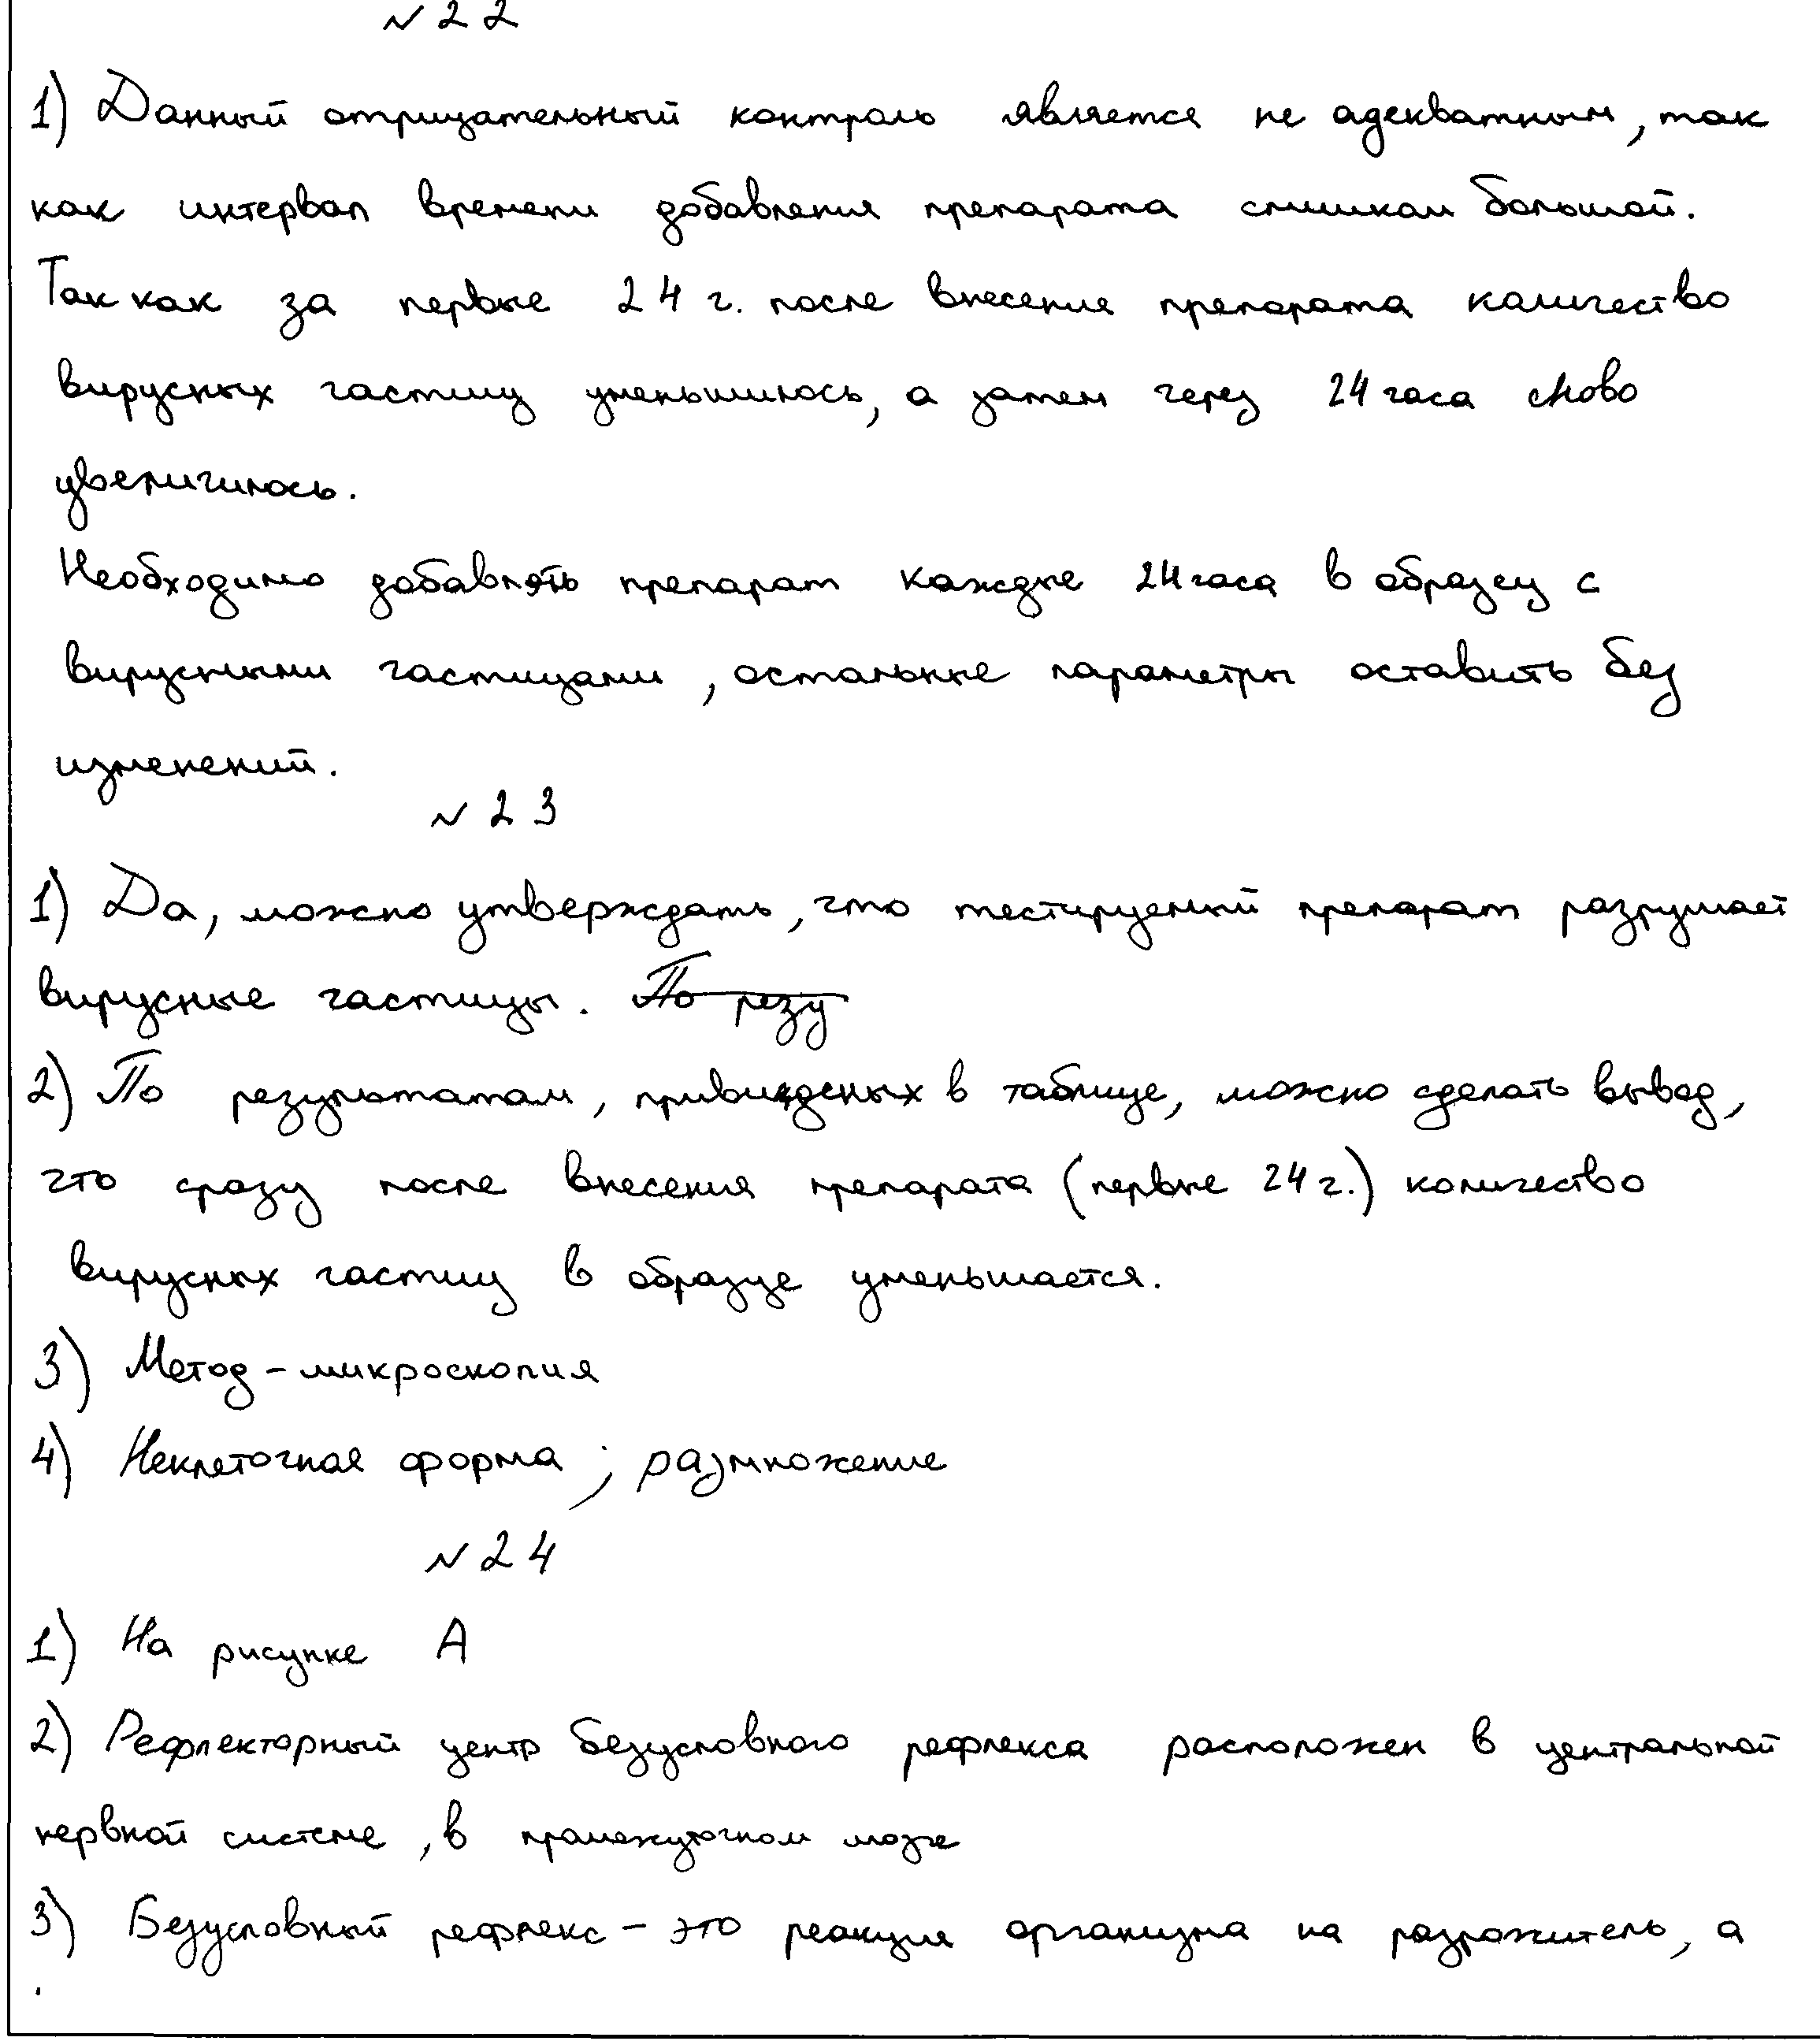 №22
1) Данный отрицательный контроль является не адекватным, так
как интервал времени добавления препарата слишком большой.
Так как за первые 24 ч. после внесения препарата количество
вирусных частиц уменьшилось, а затем через 24 часа снова
увеличилось.
Необходимо добавлять препарат каждые 24 часа в образец с
вирусными частицами, остальные параметры оставить без
изменений.
№23
1) Да, можно утверждать, что тестируемый препарат разрушает
вирусные частицы. По резу
2) По результатам, привиеденых в таблице, можно сделать вывод,
что сразу после внесения препарата (первые 24 ч.) количество
вирусных частиц в образце уменьшается.
3) Метод - микроскопия
4) Неклеточная форма ; размножение
№24
1) На рисунке А
2) Рефлекторный центр безусловного рефлекса расположен в центральной
нервной системе, в промежуточном мозге
3) Безусловный рефлекс - это реакция организма на разрожитель, а